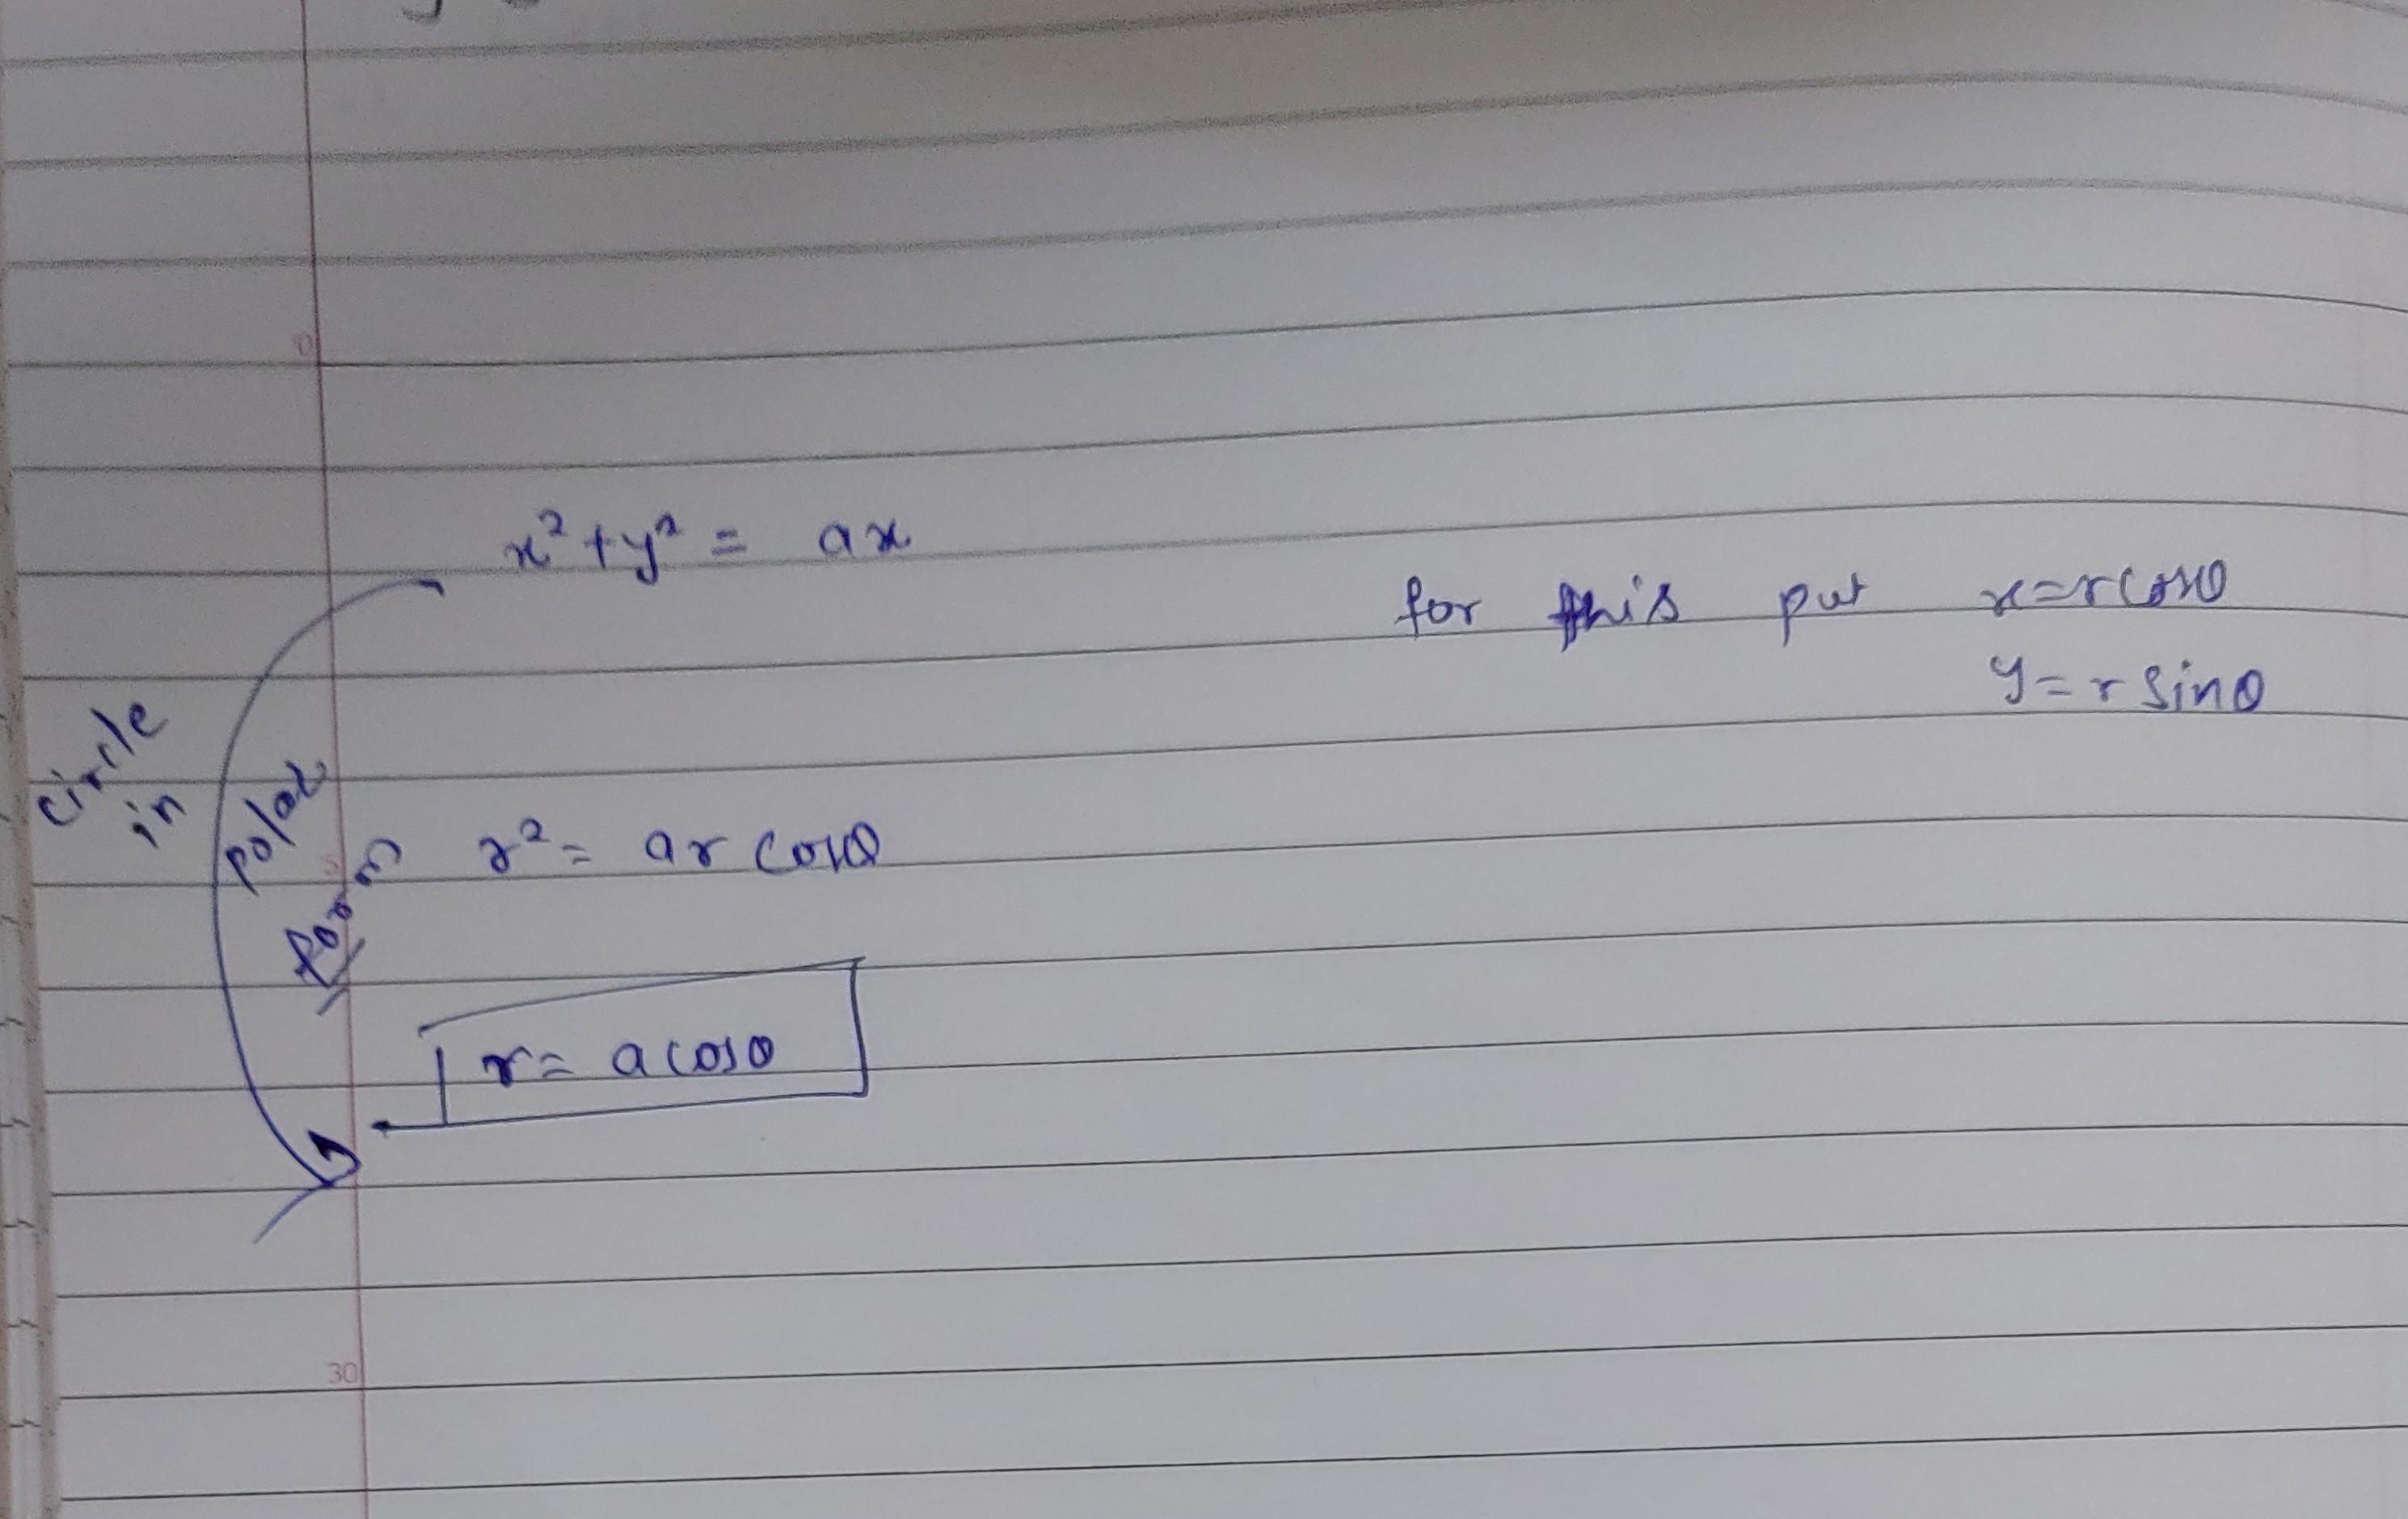 x² + y² = ax
for this put x = r cosθ
y = r sinθ
circle
in
polar
form
r² = ar cosθ
r = a cosθ
30